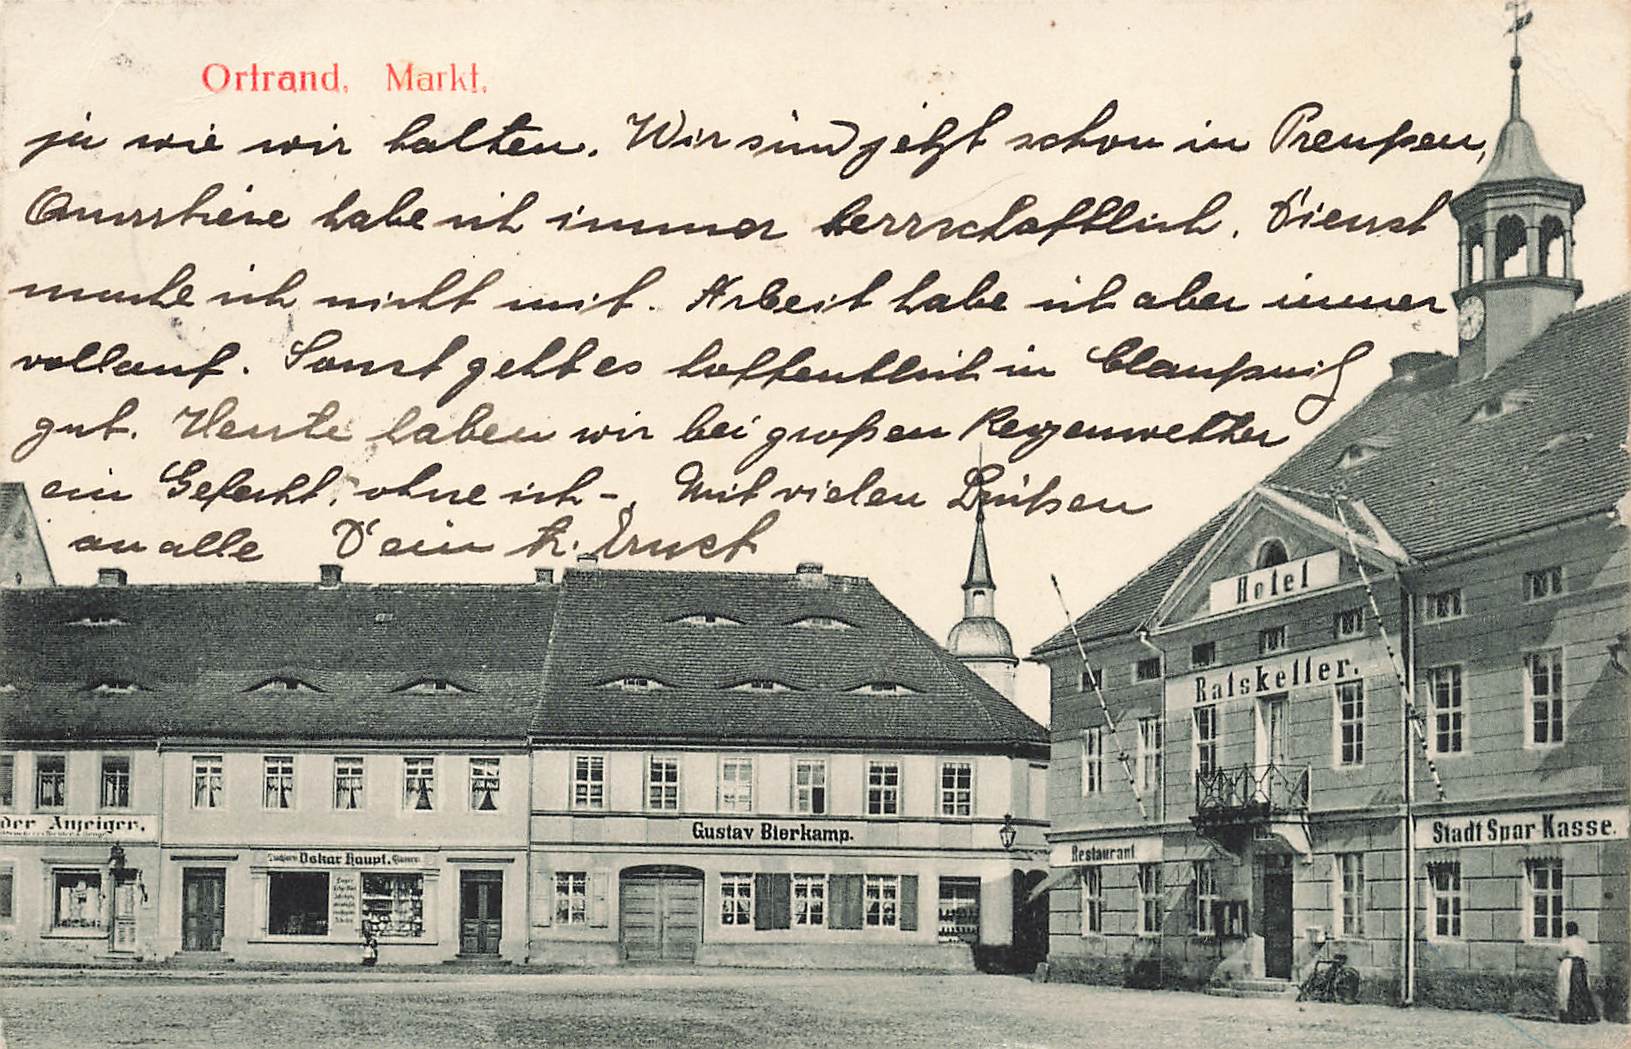 Ortrand, Markt.
ja wie wir halten. Wir sind jetzt schon in Preußen,
Quartiere habe ich immer herrschaftlich. Dienst
mache ich nicht mit. Arbeit habe ich aber immer
vollauf. Sonst geht es hoffentlich in Claußnitz
gut. Heute haben wir bei großen Regenwetter
ein Gefecht, ohne ich -, Mit vielen Grüßen
an alle Dein tr. Ernst
Hotel
Ratskeller.
Restaurant
Stadt Spar Kasse.
Gustav Bierkamp.
der Anzeiger.
Oskar Haupt.